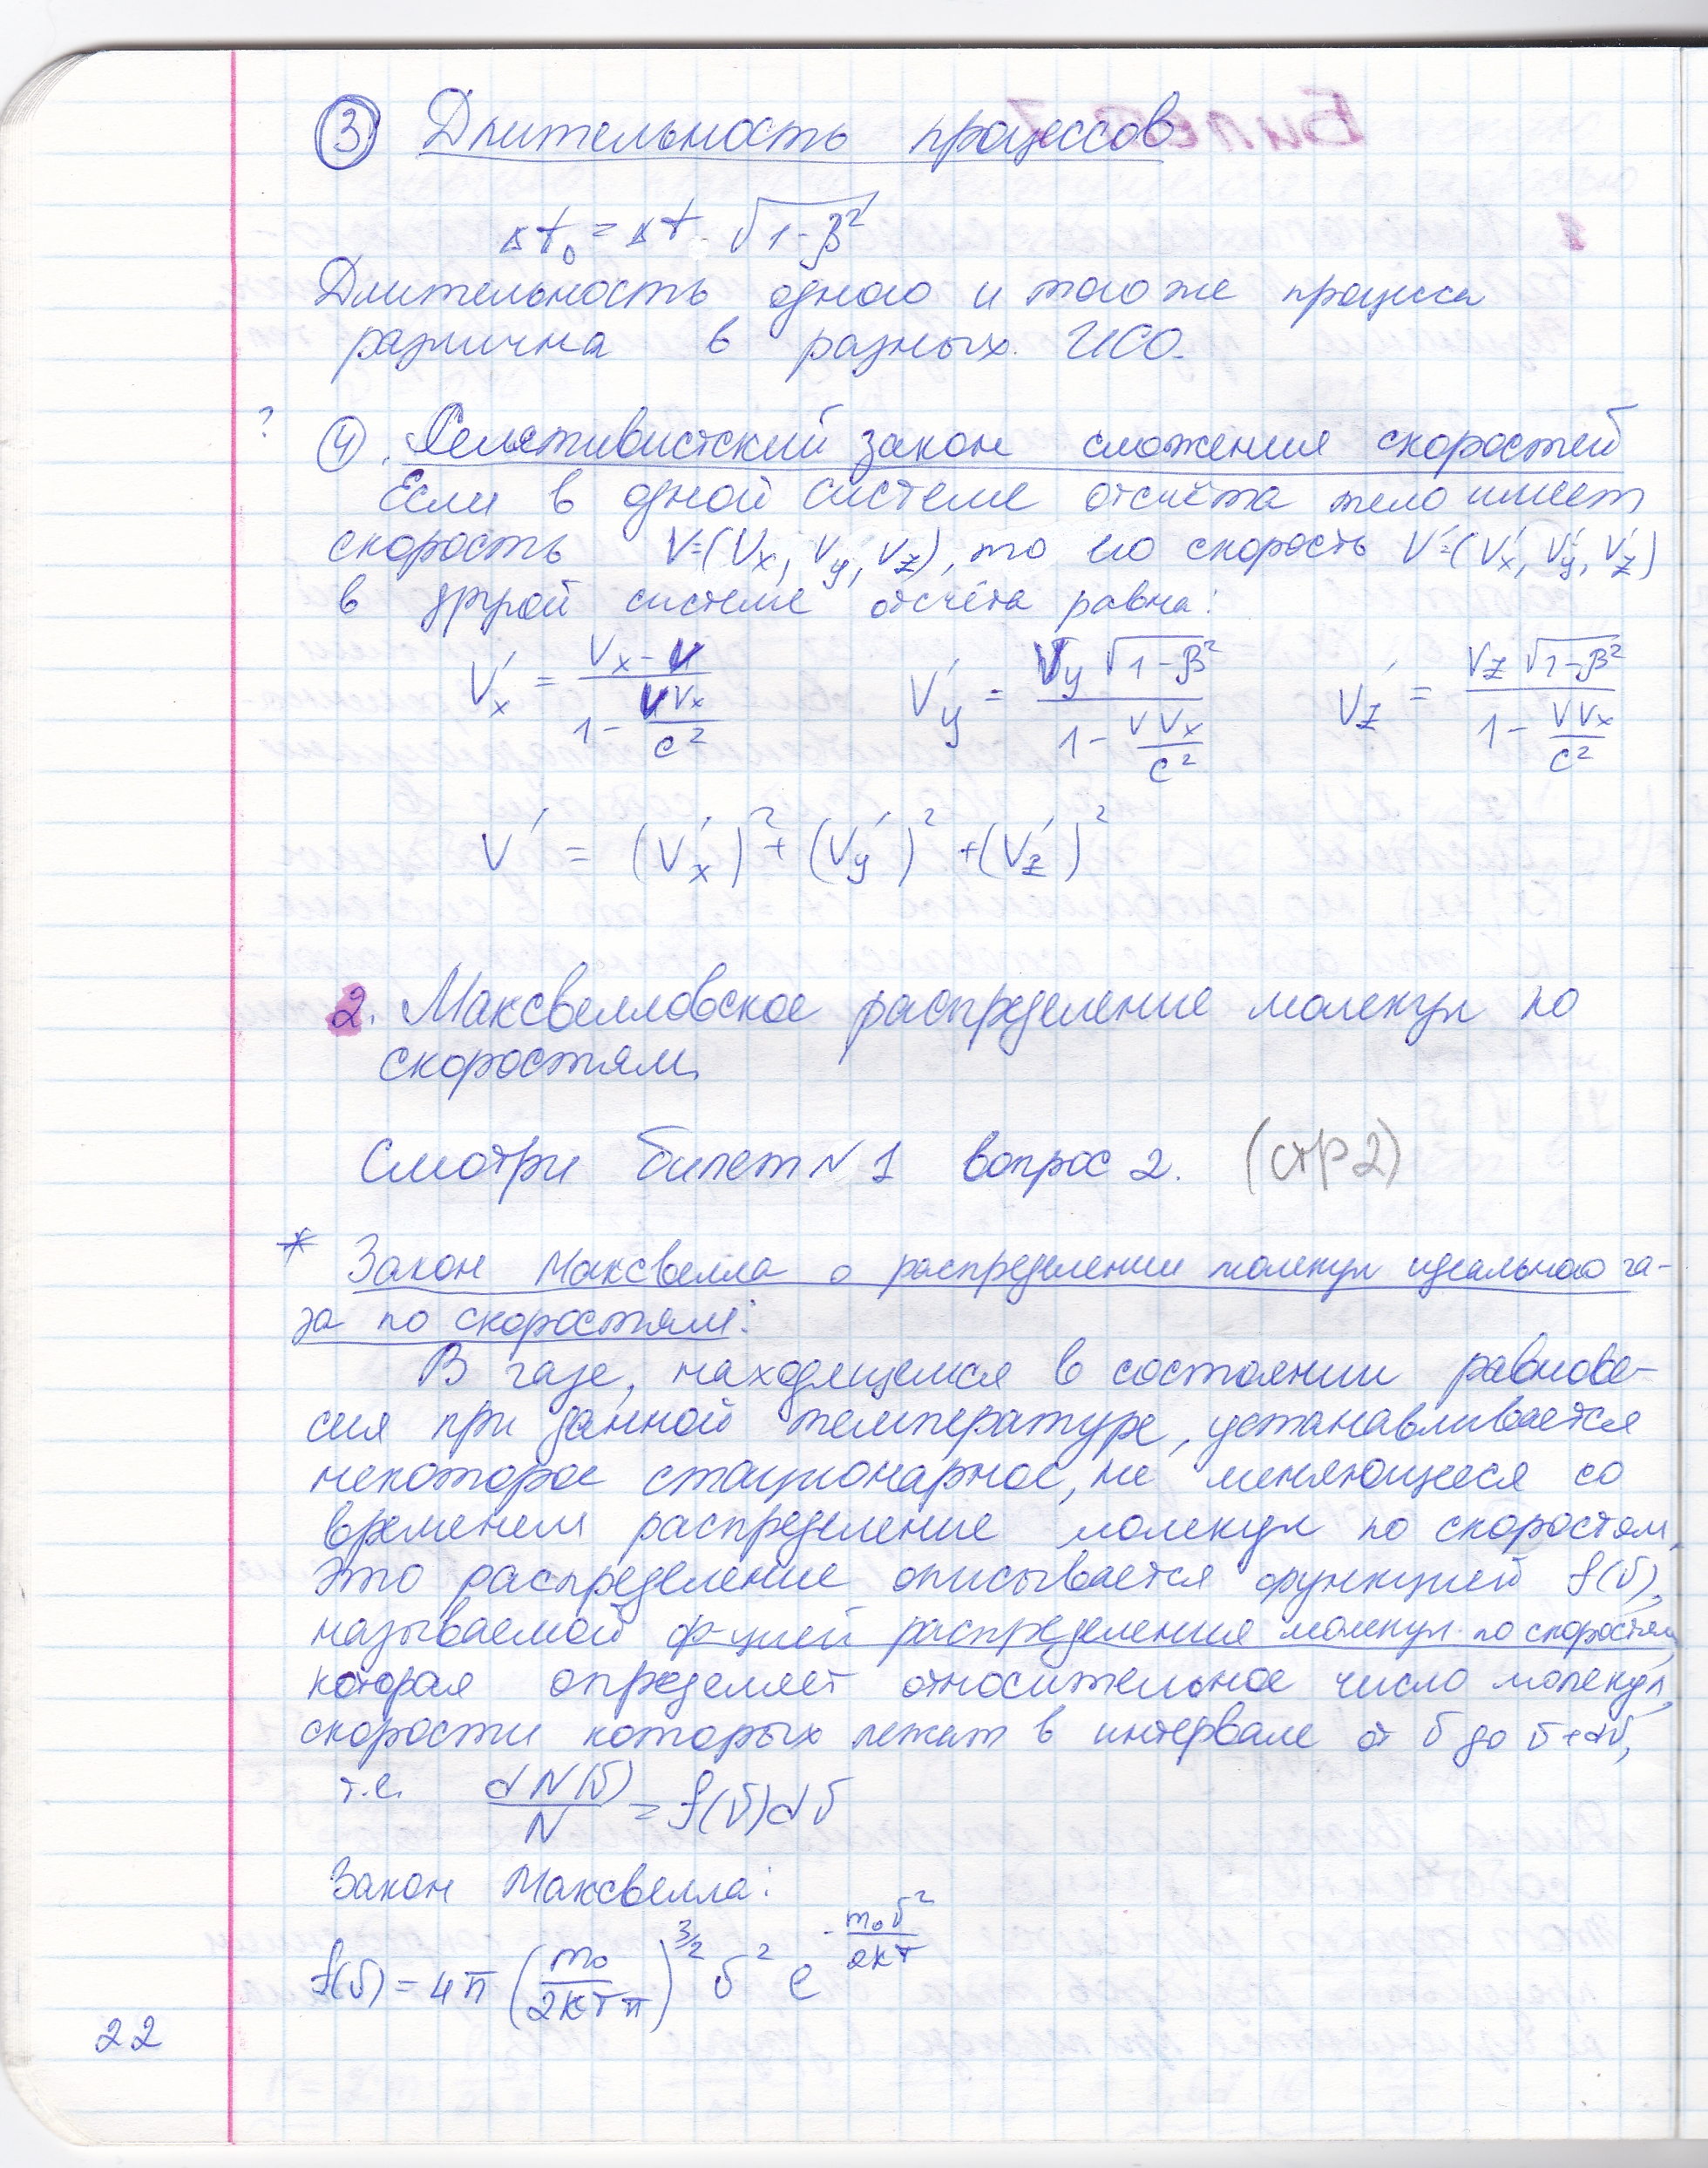 ③ Длительность процессов
Δt₀ = Δt · √(1-β²)
Длительность одного и того же процесса
различна в разных ИСО.
? ④. Релятивистский закон сложения скоростей
Если в одной системе отсчёта тело имеет
скорость V=(Vx, Vy, Vz), то его скорость V'=(V'x, V'y, V'z)
в другой системе отсчёта равна:
V'x = (Vx - V)/(1 - VVx/c²) V'y = (Vy √(1-β²))/(1 - VVx/c²) V'z = (Vz √(1-β²))/(1 - VVx/c²)
V' = (V'x)² + (V'y)² + (V'z)²
2. Максвелловское распределение молекул по
скоростям
Смотри билет N 1 вопрос 2. (стр 2)
* Закон Максвелла о распределении молекул идеального га-
за по скоростям:
В газе, находящемся в состоянии равнове-
сия при данной температуре, устанавливается
некоторое стационарное, не меняющееся со
временем распределение молекул по скоростям,
Это распределение описывается функцией f(υ),
называемой ф-цией распределения молекул по скоростям,
которая определяет относительное число молекул,
скорости которых лежат в интервале от υ до υ+dυ,
т.е. dN(υ)/N = f(υ)dυ
Закон Максвелла:
f(υ) = 4π (m₀/2kTπ)^3/2 υ² e^(-m₀υ²/2kT)
22
Билет 7
1